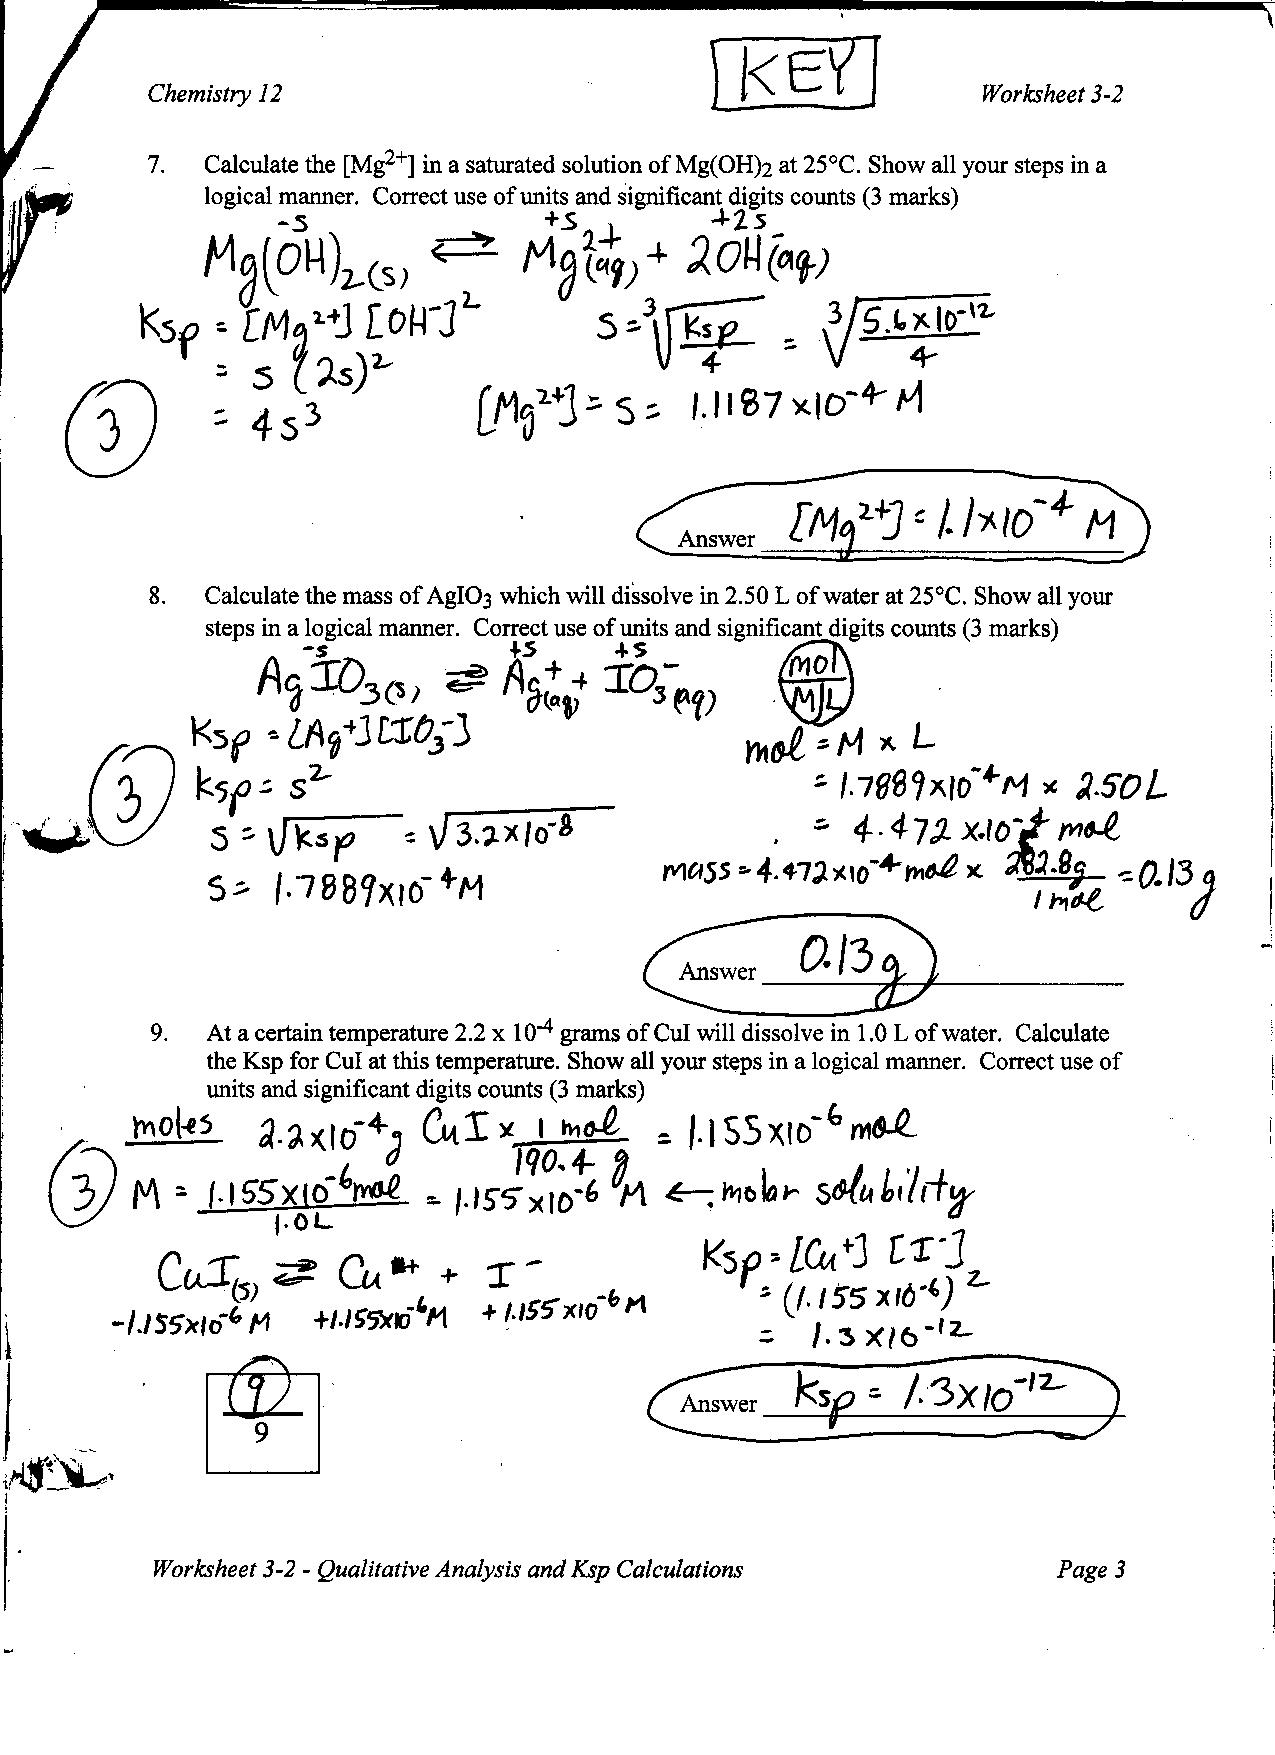 KEY
Chemistry 12 Worksheet 3-2
7. Calculate the [Mg2+] in a saturated solution of Mg(OH)2 at 25°C. Show all your steps in a
logical manner. Correct use of units and significant digits counts (3 marks)
-s +s +2s
Mg(OH)2(s) ⇌ Mg2+(aq) + 2OH-(aq)
Ksp = [Mg2+][OH-]2 s = 3√Ksp/4 = 3√5.6x10-12/4
= s(2s)2
3 = 4s3 [Mg2+] = s = 1.1187 x10-4 M
Answer [Mg2+] = 1.1x10-4 M
8. Calculate the mass of AgIO3 which will dissolve in 2.50 L of water at 25°C. Show all your
steps in a logical manner. Correct use of units and significant digits counts (3 marks)
-s +s +s
AgIO3(s) ⇌ Ag+(aq) + IO3-(aq) mol M|L
Ksp = [Ag+][IO3-] mol = M x L
3 Ksp = s2 = 1.7889x10-4 M x 2.50 L
s = √Ksp = √3.2x10-8 = 4.472 x10-4 mol
s = 1.7889x10-4 M mass = 4.472x10-4 mol x 282.8g/1 mol = 0.13 g
Answer 0.13 g
9. At a certain temperature 2.2 x 10-4 grams of CuI will dissolve in 1.0 L of water. Calculate
the Ksp for CuI at this temperature. Show all your steps in a logical manner. Correct use of
units and significant digits counts (3 marks)
moles 2.2x10-4 g CuI x 1 mol/190.4 g = 1.155x10-6 mol
3 M = 1.155x10-6 mol/1.0L = 1.155x10-6 M ← molar solubility
CuI(s) ⇌ Cu+ + I- Ksp = [Cu+][I-]
-1.155x10-6 M +1.155x10-6 M +1.155x10-6 M = (1.155 x10-6)2
= 1.3 x10-12
9
9
Answer Ksp = 1.3x10-12
Worksheet 3-2 - Qualitative Analysis and Ksp Calculations Page 3